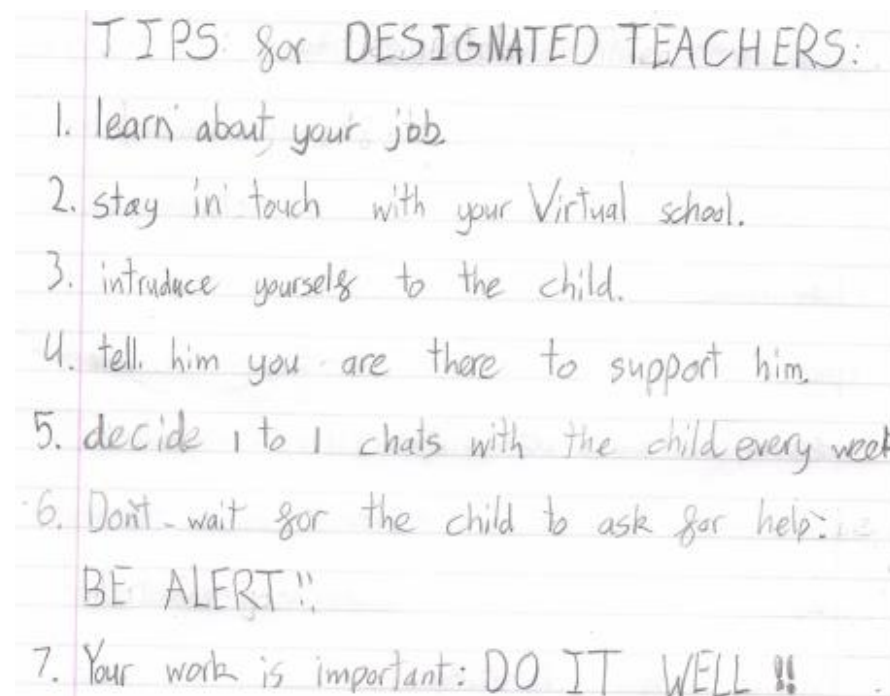 TIPS for DESIGNATED TEACHERS:
1. learn about your job.
2. stay in touch with your Virtual school.
3. intruduce yourself to the child.
4. tell him you are there to support him.
5. decide 1 to 1 chats with the child every week
6. Don't wait for the child to ask for help:
BE ALERT!!
7. Your work is important: DO IT WELL!!